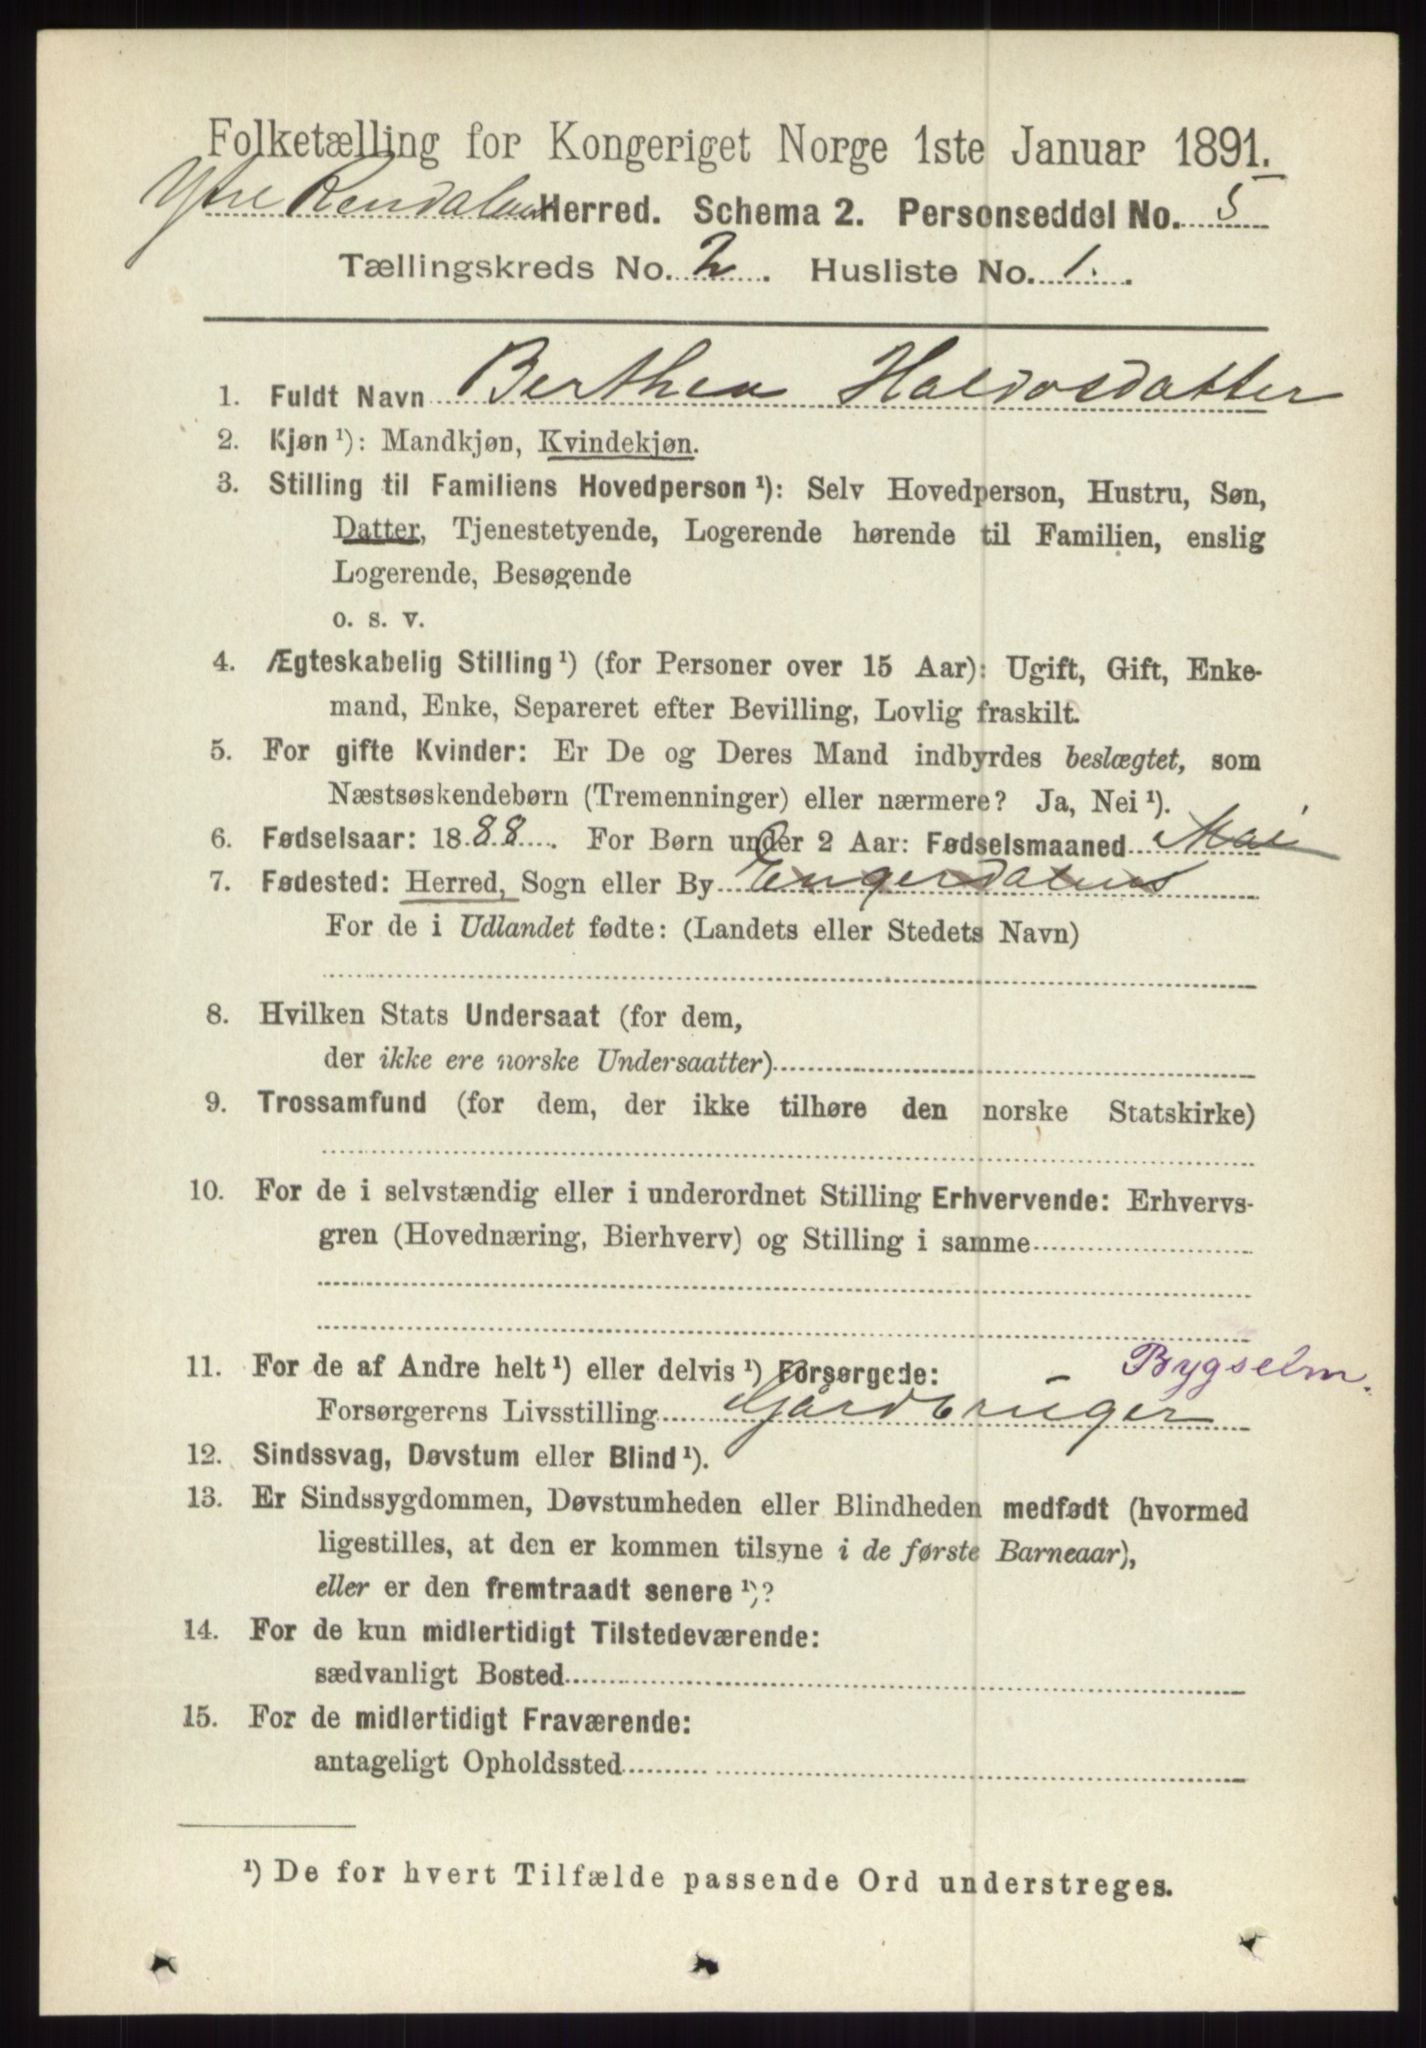 Folketælling for Kongeriget Norge 1ste Januar 1891.
Ytre Rendalen Herred. Schema 2. Personseddel No. 5
Tællingskreds No. 2. Husliste No. 1.
1. Fuldt Navn Berthea Haldosdatter
2. Kjøn ¹): Mandkjøn, Kvindekjøn.
3. Stilling til Familiens Hovedperson ¹): Selv Hovedperson, Hustru, Søn,
Datter, Tjenestetyende, Logerende hørende til Familien, enslig
Logerende, Besøgende
o. s. v.
4. Ægteskabelig Stilling ¹) (for Personer over 15 Aar): Ugift, Gift, Enke-
mand, Enke, Separeret efter Bevilling, Lovlig fraskilt.
5. For gifte Kvinder: Er De og Deres Mand indbyrdes beslægtet, som
Næstsøskendebørn (Tremenninger) eller nærmere? Ja, Nei ¹).
6. Fødselsaar: 1888. For Børn under 2 Aar: Fødselsmaaned Mai
7. Fødested: Herred, Sogn eller By Engerdalens
For de i Udlandet fødte: (Landets eller Stedets Navn)
8. Hvilken Stats Undersaat (for dem,
der ikke ere norske Undersaatter)
9. Trossamfund (for dem, der ikke tilhøre den norske Statskirke)
10. For de i selvstændig eller i underordnet Stilling Erhvervende: Erhvervs-
gren (Hovednæring, Bierhverv) og Stilling i samme
Bygselm.
11. For de af Andre helt ¹) eller delvis ¹) Forsørgede:
Forsørgerens Livsstilling Gårdbruger
12. Sindssvag, Døvstum eller Blind ¹).
13. Er Sindssygdommen, Døvstumheden eller Blindheden medfødt (hvormed
ligestilles, at den er kommen tilsyne i de første Barneaar),
eller er den fremtraadt senere ¹)?
14. For de kun midlertidigt Tilstedeværende:
sædvanligt Bosted
15. For de midlertidigt Fraværende:
antageligt Opholdssted
¹) De for hvert Tilfælde passende Ord understreges.